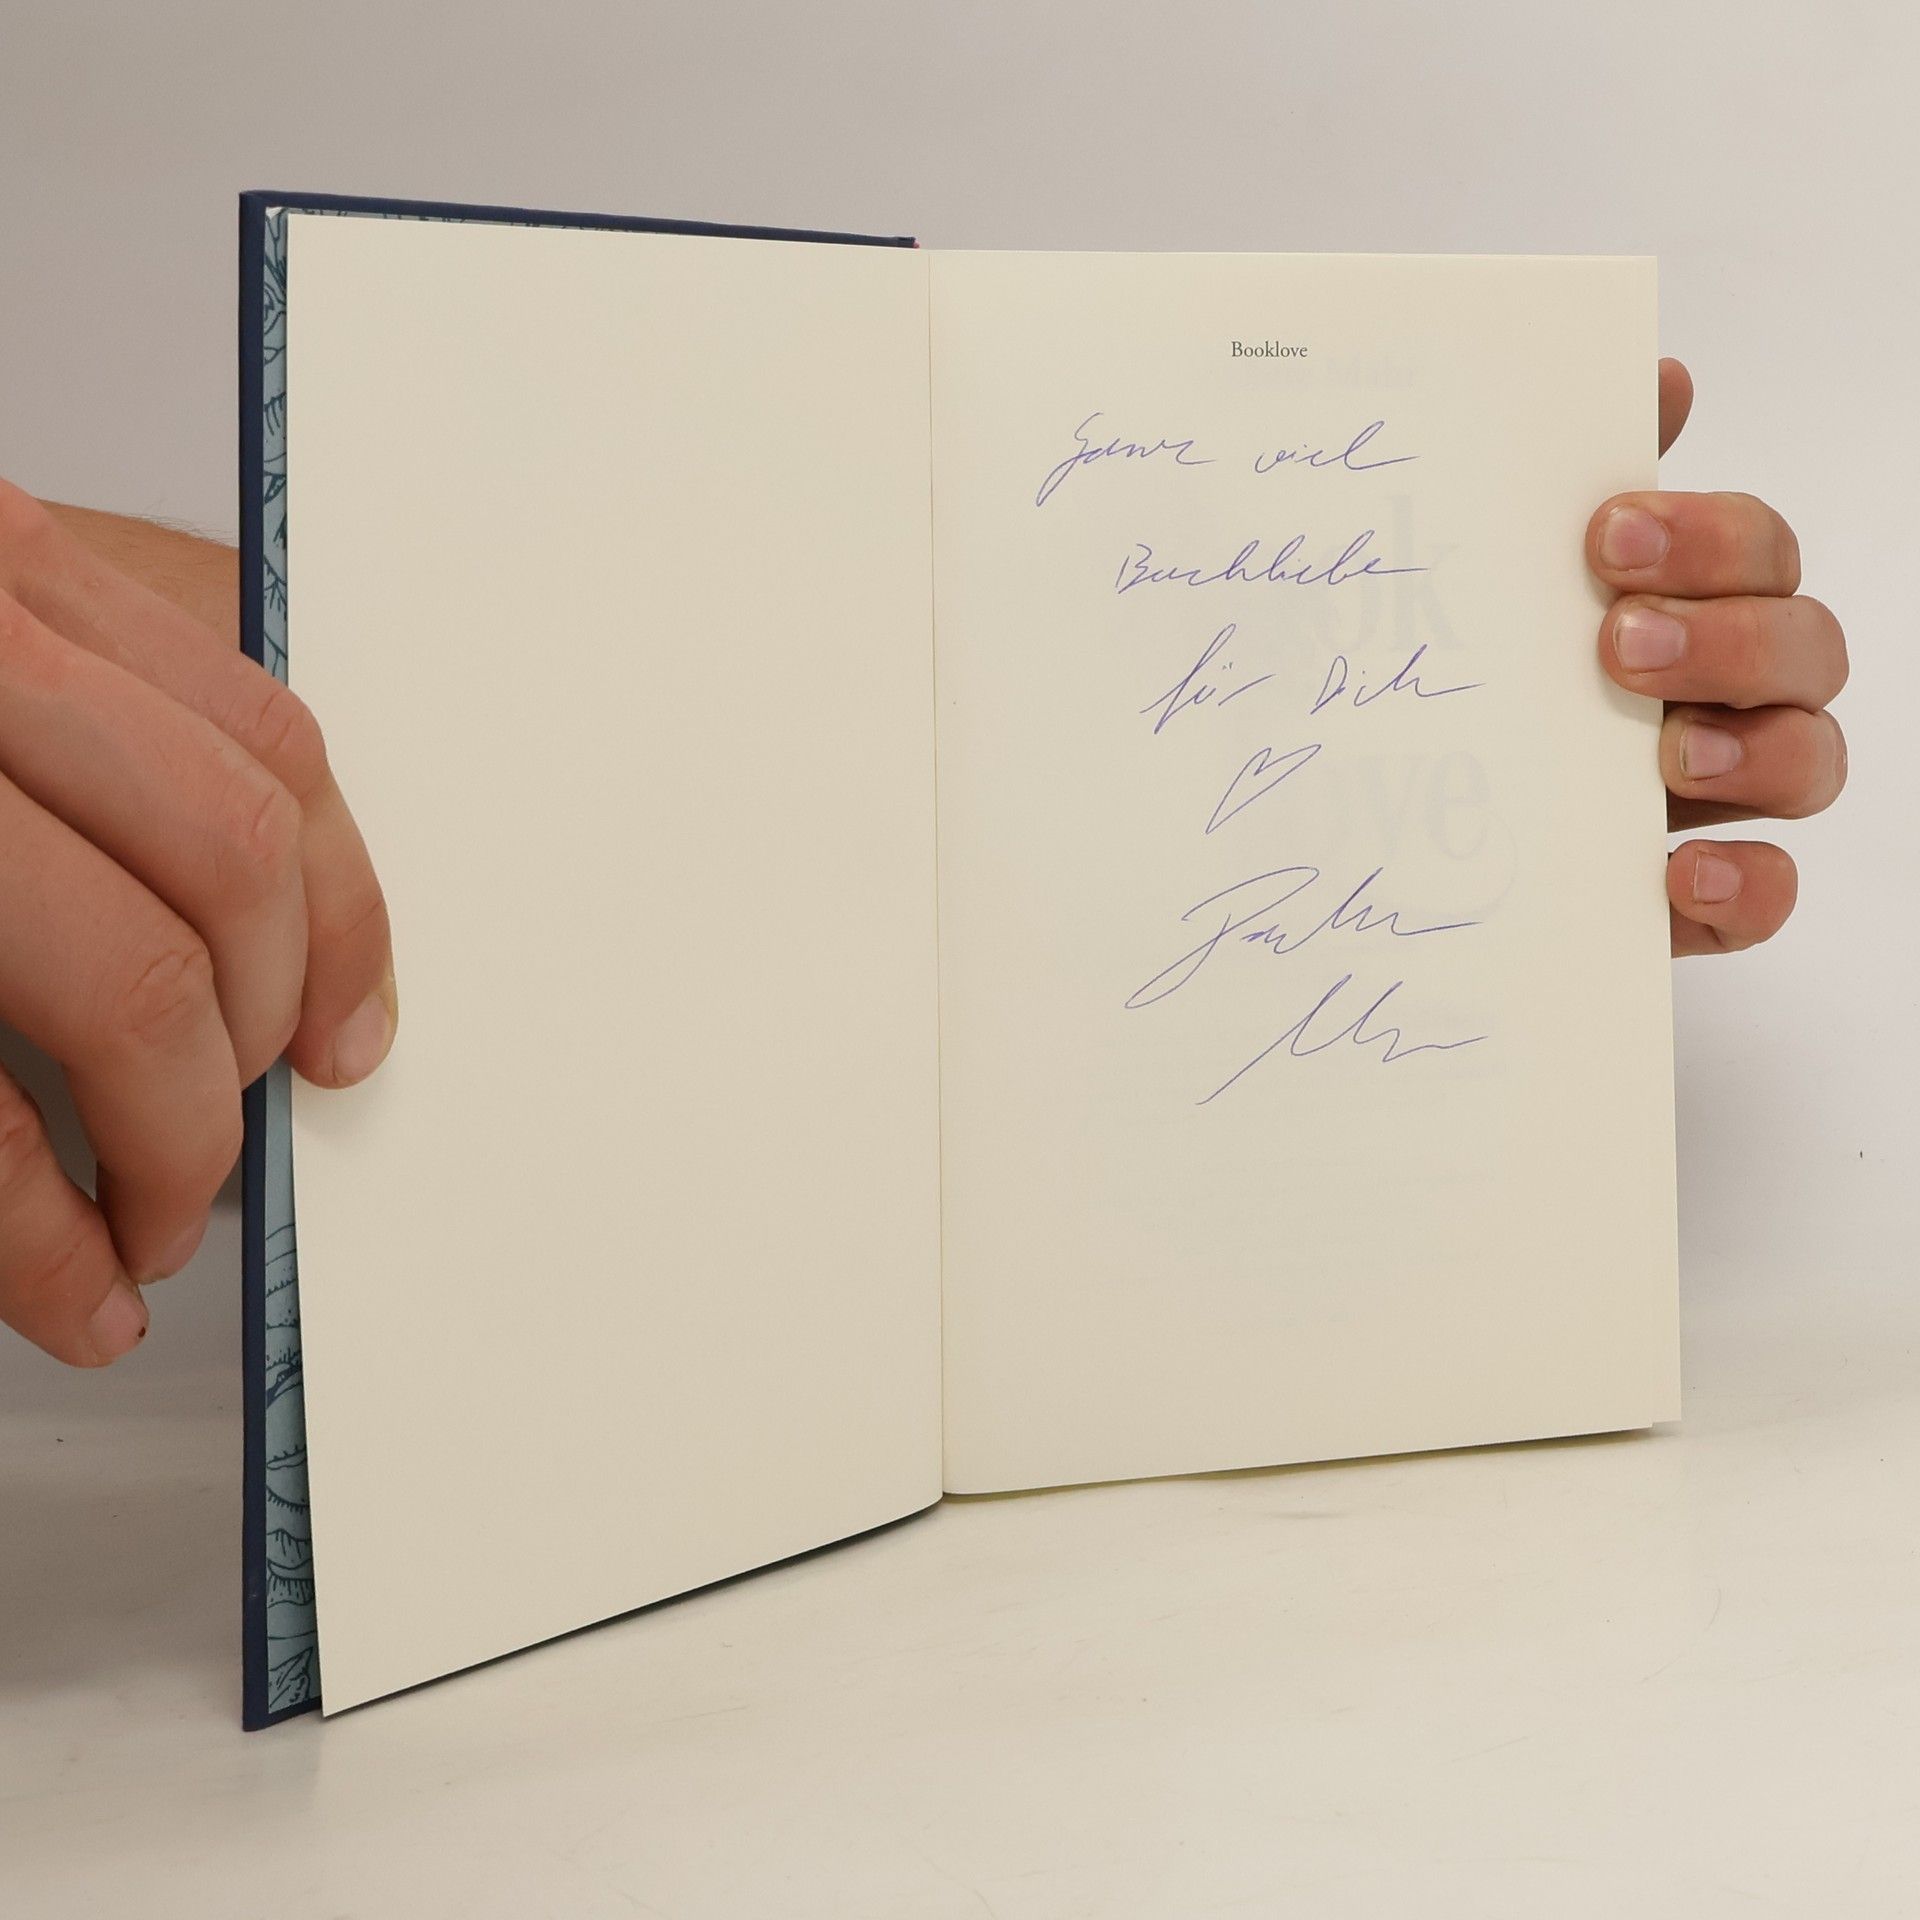 Booklove
Ganz viel
Buchliebe
für Dich
♡